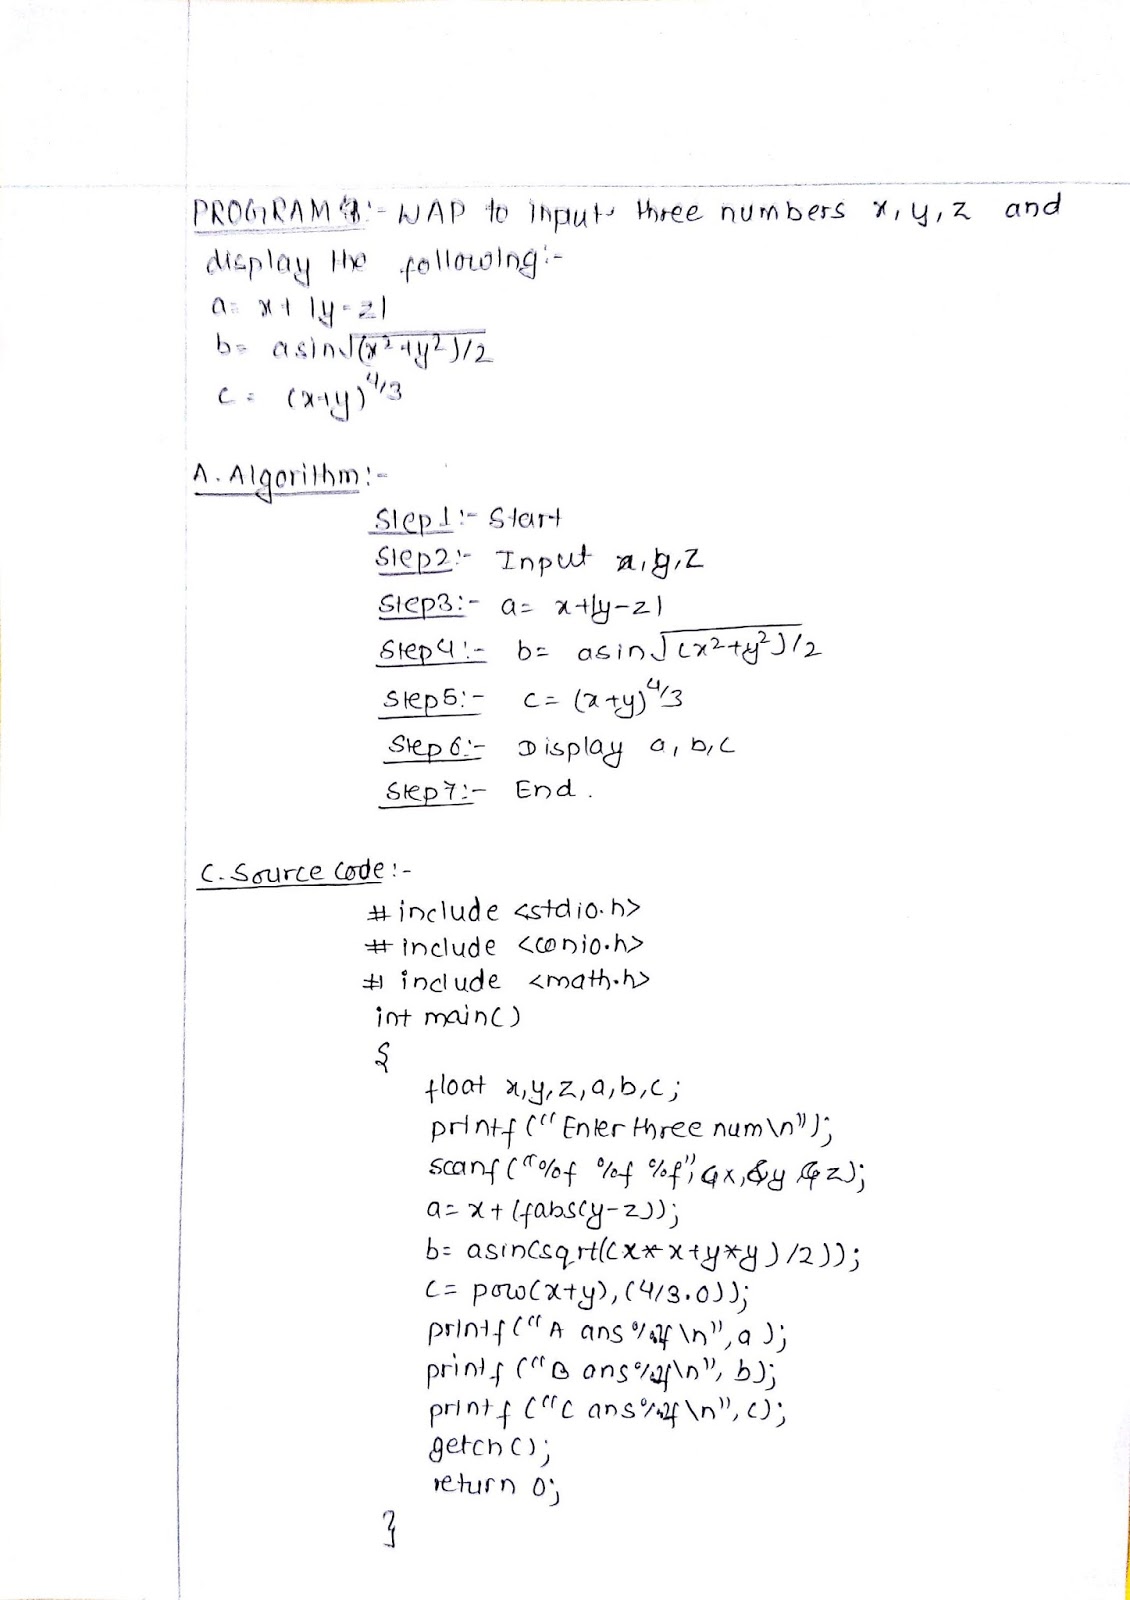 PROGRAM :- WAP to input three numbers x, y, z and
display the following:-
a= x+ |y-z|
b= asin√(x²+y²)/2
c= (x+y)^4/3
A. Algorithm:-
Step1:- Start
Step2:- Input x, y, z
Step3:- a= x+|y-z|
Step4:- b= asin√(x²+y²)/2
Step5:- c= (x+y)^4/3
Step6:- Display a, b, c
Step7:- End.
C. Source Code:-
#include <stdio.h>
#include <conio.h>
#include <math.h>
int main()
{
float x,y,z,a,b,c;
printf("Enter three num\n");
scanf("%f %f %f",&x,&y &z);
a= x+(fabs(y-z));
b= asin(sqrt((x*x+y*y)/2));
c= pow(x+y),(4/3.0));
printf("A ans%.2f\n",a);
printf("B ans%.2f\n", b);
printf("C ans%.2f\n",c);
getch();
return 0;
}